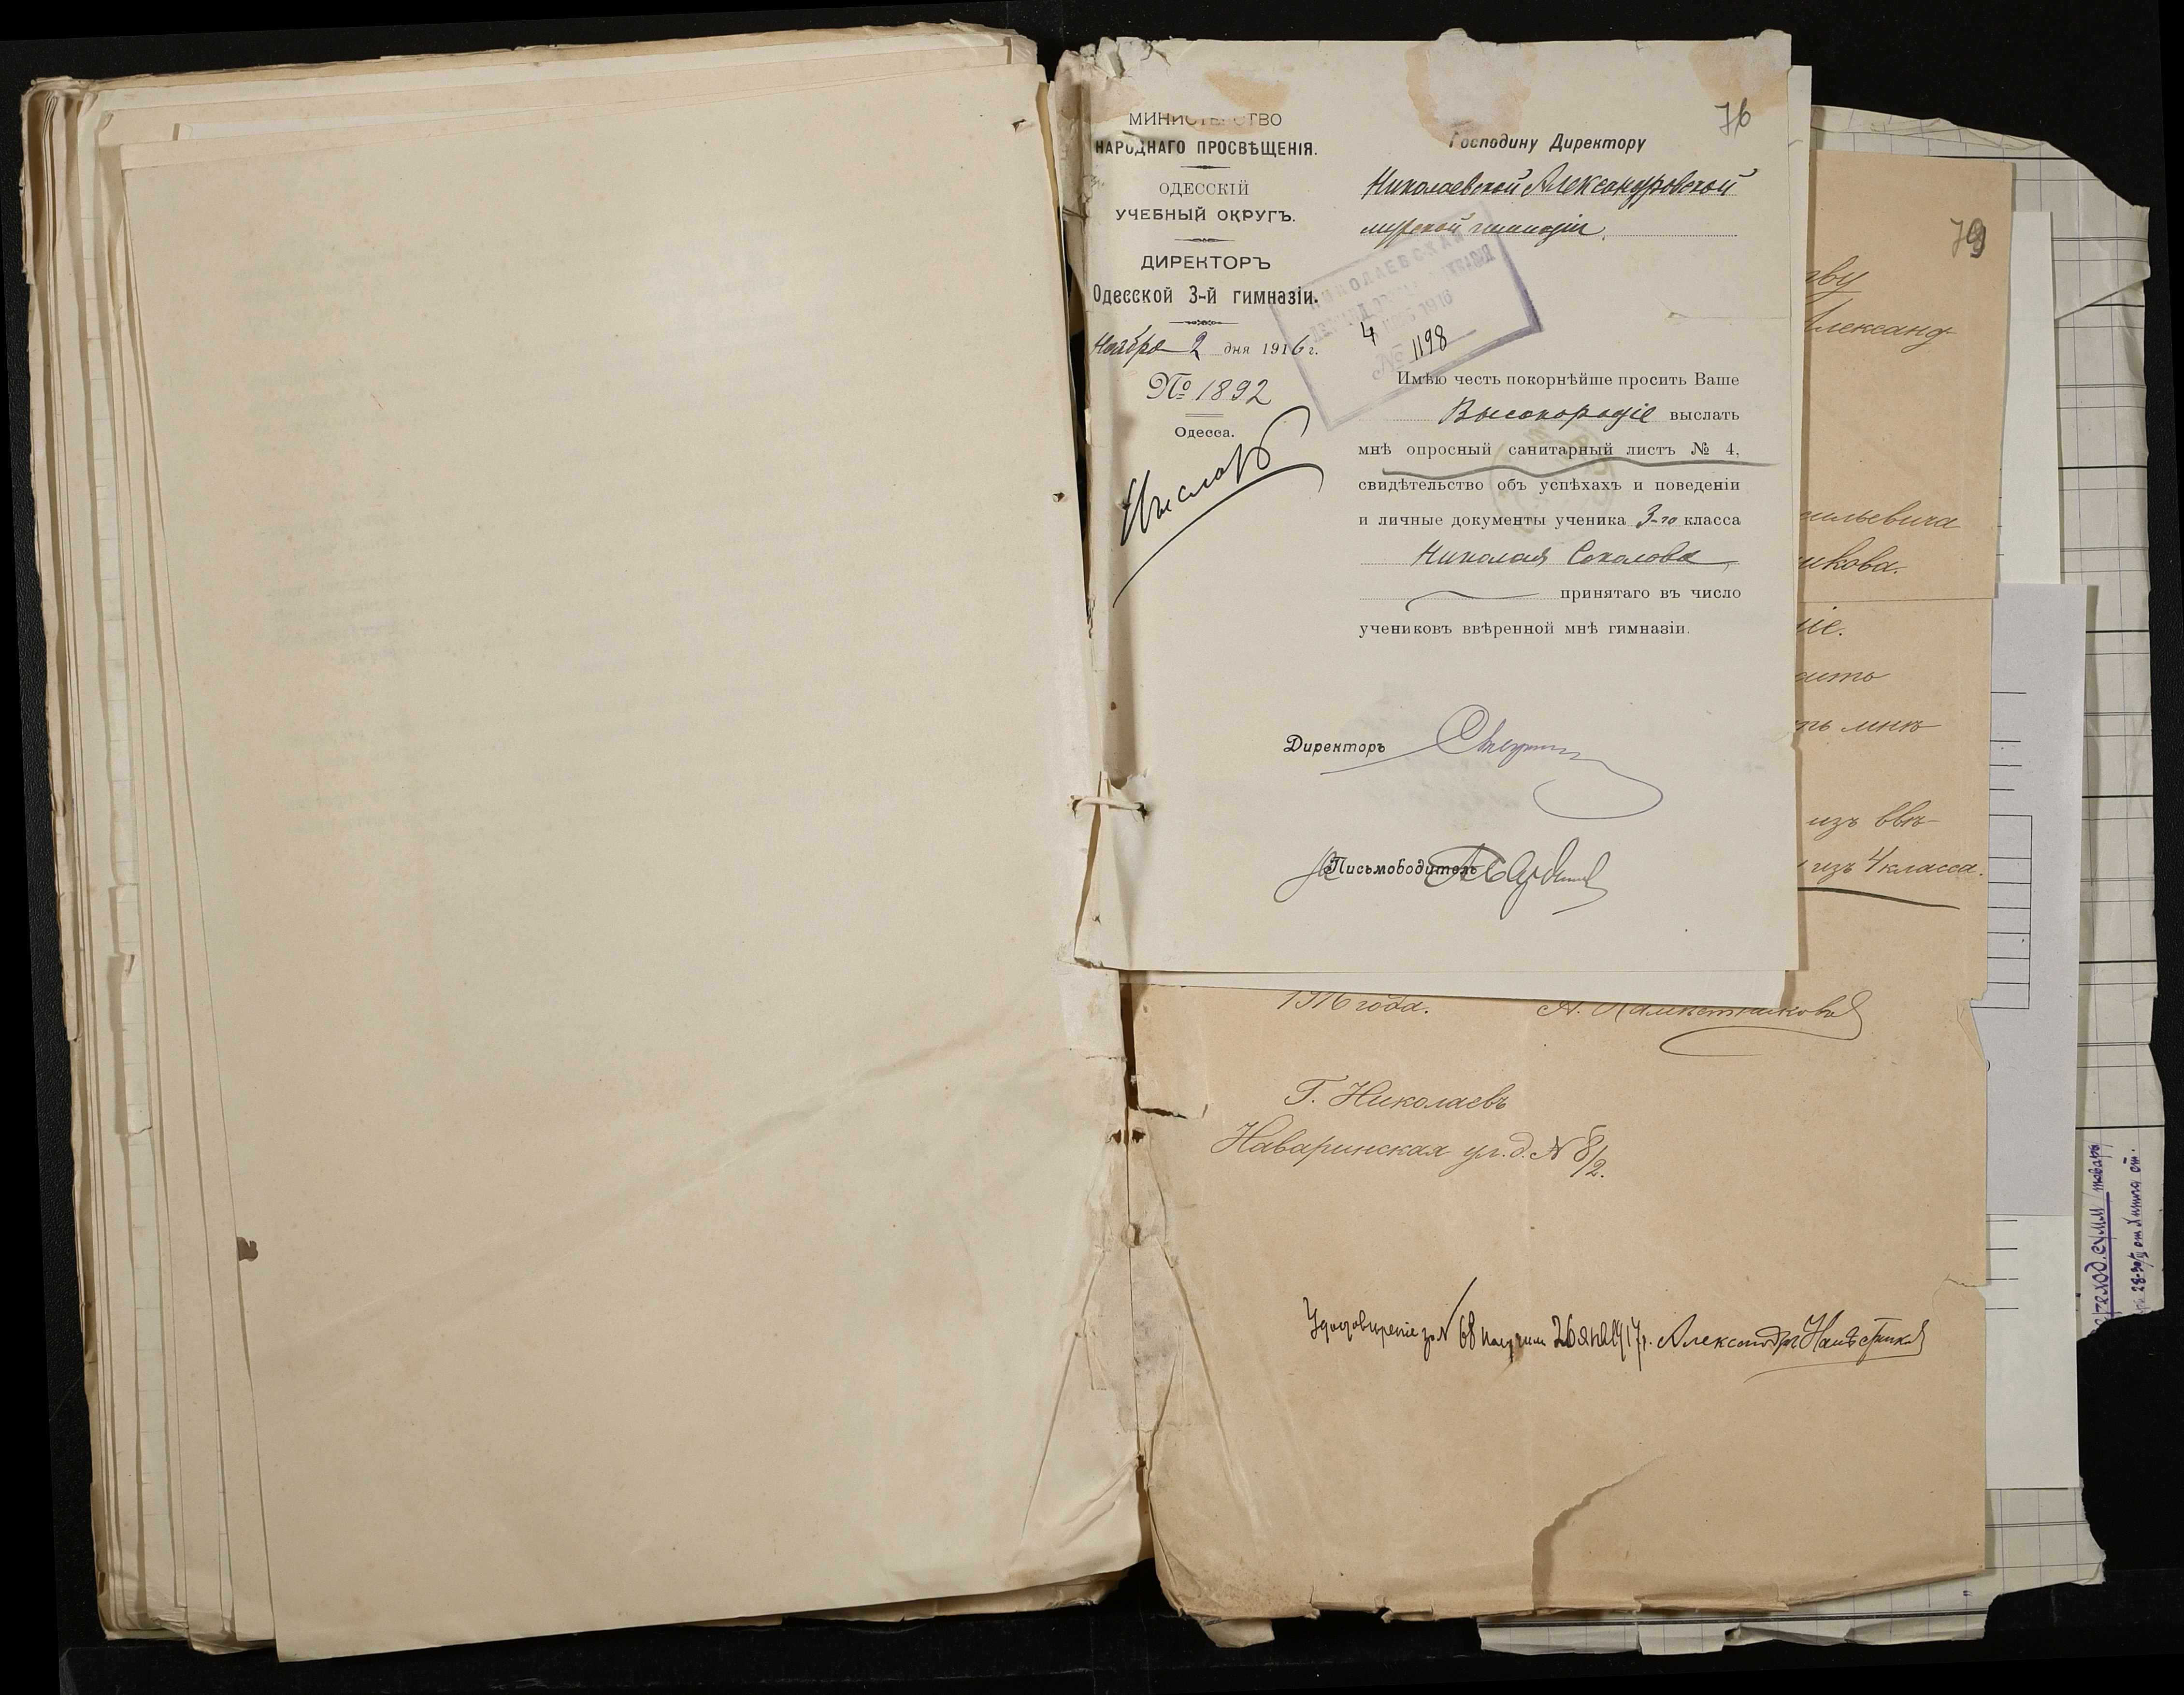 76
МИНИСТЕРСТВО
НАРОДНАГО ПРОСВѢЩЕНІЯ.
ОДЕССКІЙ
УЧЕБНЫЙ ОКРУГЪ.
ДИРЕКТОРЪ
Одесской 3-й гимназіи.
Ноября 2 дня 1916 г.
№ 1892
Одесса.
Выслать
Господину Директору
Николаевской Александровской
мужской гимназіи.
НИКОЛАЕВСКАЯ
1916
4
№ 1198
Имѣю честь покорнѣйше просить Ваше
Высокородіе выслать
мнѣ опросный санитарный листъ № 4,
свидѣтельство объ успѣхахъ и поведеніи
и личные документы ученика 3-го класса
Николая Соколова
принятаго въ число
учениковъ ввѣренной мнѣ гимназіи.
Директоръ
Письмоводитель
79
Александ-
сильевича
икова.
ніе.
мнѣ
изъ ввѣ-
изъ 4 класса.
1916 года. А. Намѣстникова
Г. Николаевъ
Наваринская ул. д. № 8/2.
Удостовѣреніе за № 68 получилъ 26 янв 1917 г. Александръ Намѣстниковъ